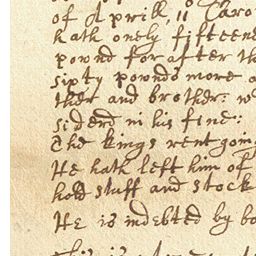 of Aprill 11 Caro
hath onely fifteene
pownd for after th
sixty pownds more a
ther and brother: w
siderd in his fine:
The kings rent going
He hath left him of
hold stuff and stock
He is indebted by bo